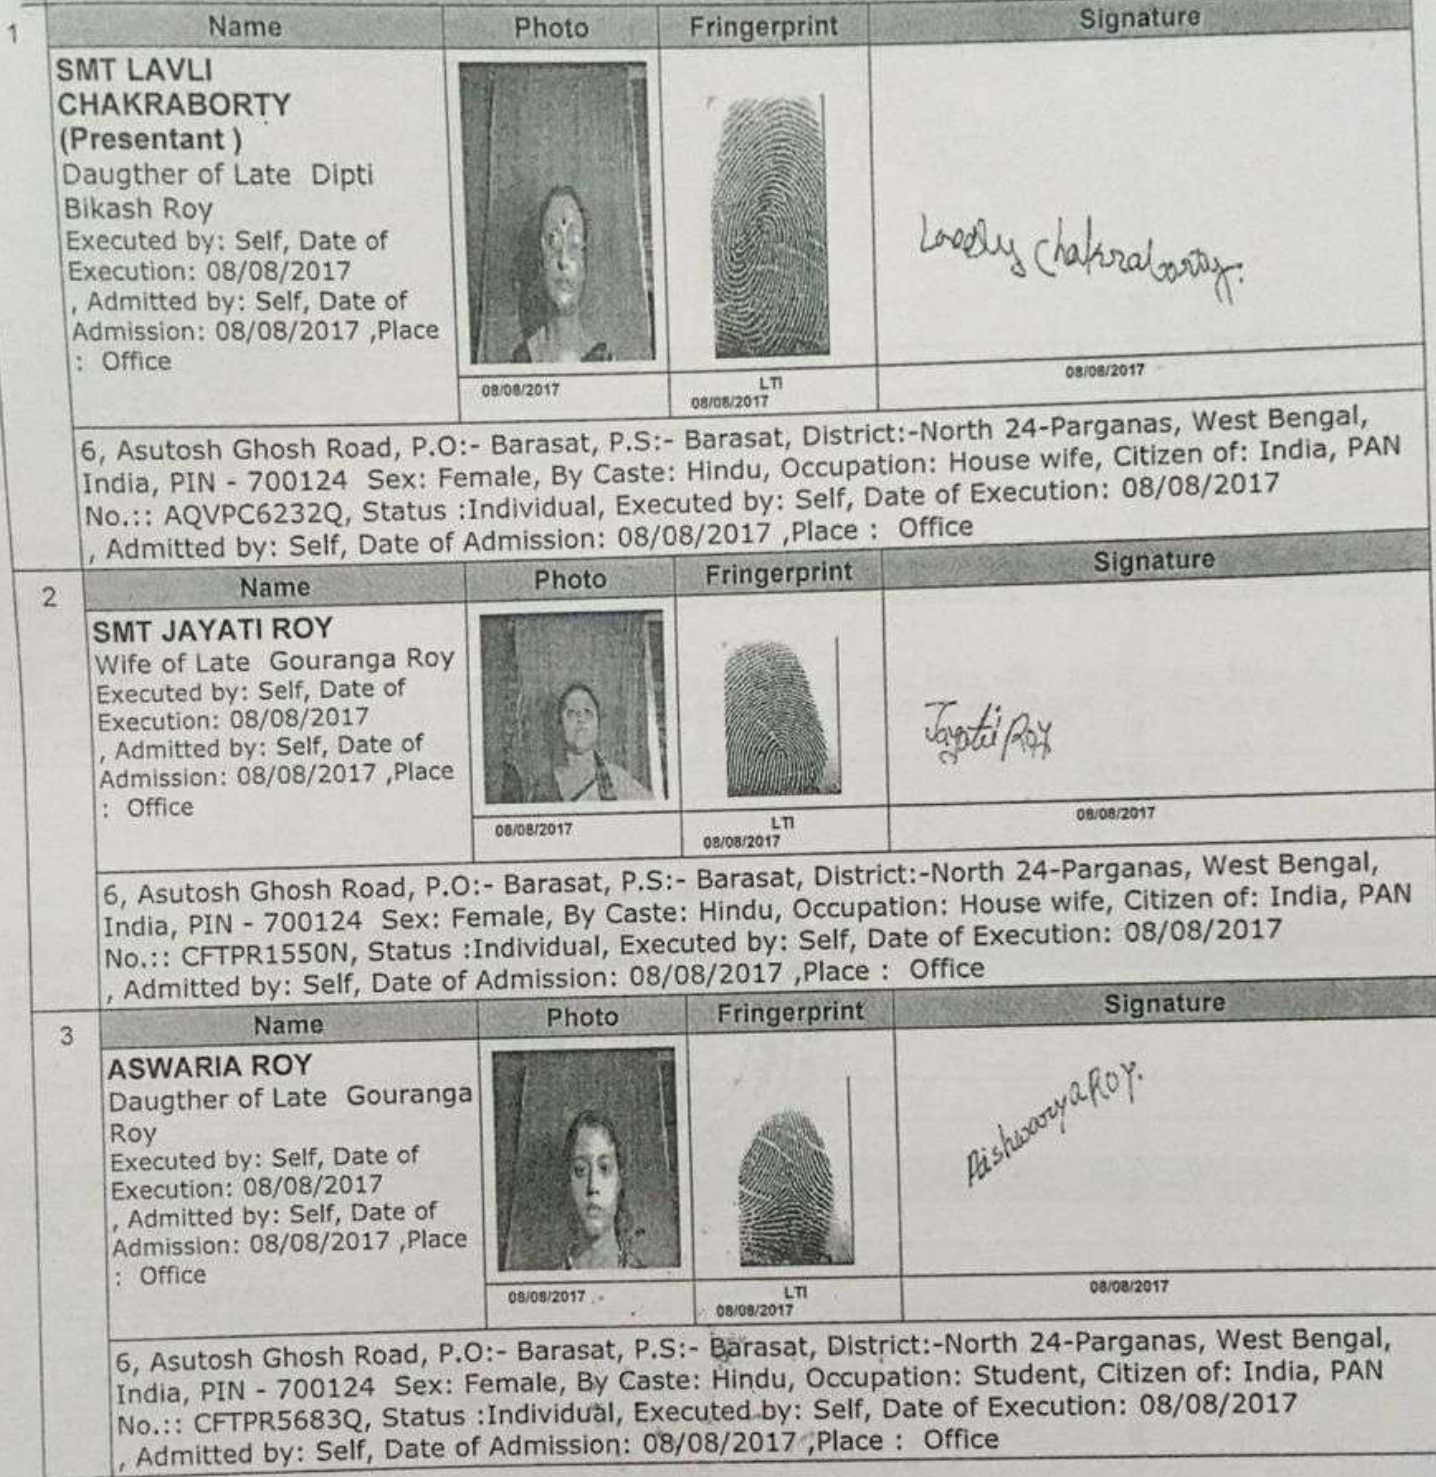 1
Name Photo Fringerprint Signature
SMT LAVLI
CHAKRABORTY
(Presentant )
Daugther of Late Dipti
Bikash Roy
Executed by: Self, Date of
Execution: 08/08/2017
, Admitted by: Self, Date of
Admission: 08/08/2017 ,Place
: Office
Lovely Chakraborty.
08/08/2017
LTI
08/08/2017
08/08/2017
6, Asutosh Ghosh Road, P.O:- Barasat, P.S:- Barasat, District:-North 24-Parganas, West Bengal,
India, PIN - 700124 Sex: Female, By Caste: Hindu, Occupation: House wife, Citizen of: India, PAN
No.:: AQVPC6232Q, Status :Individual, Executed by: Self, Date of Execution: 08/08/2017
, Admitted by: Self, Date of Admission: 08/08/2017 ,Place : Office
2
Name Photo Fringerprint Signature
SMT JAYATI ROY
Wife of Late Gouranga Roy
Executed by: Self, Date of
Execution: 08/08/2017
, Admitted by: Self, Date of
Admission: 08/08/2017 ,Place
: Office
Jayati Roy
08/08/2017
LTI
08/08/2017
08/08/2017
6, Asutosh Ghosh Road, P.O:- Barasat, P.S:- Barasat, District:-North 24-Parganas, West Bengal,
India, PIN - 700124 Sex: Female, By Caste: Hindu, Occupation: House wife, Citizen of: India, PAN
No.:: CFTPR1550N, Status :Individual, Executed by: Self, Date of Execution: 08/08/2017
, Admitted by: Self, Date of Admission: 08/08/2017 ,Place : Office
3
Name Photo Fringerprint Signature
ASWARIA ROY
Daugther of Late Gouranga
Roy
Executed by: Self, Date of
Execution: 08/08/2017
, Admitted by: Self, Date of
Admission: 08/08/2017 ,Place
: Office
Aishwarya Roy.
08/08/2017
LTI
08/08/2017
08/08/2017
6, Asutosh Ghosh Road, P.O:- Barasat, P.S:- Barasat, District:-North 24-Parganas, West Bengal,
India, PIN - 700124 Sex: Female, By Caste: Hindu, Occupation: Student, Citizen of: India, PAN
No.:: CFTPR5683Q, Status :Individual, Executed by: Self, Date of Execution: 08/08/2017
, Admitted by: Self, Date of Admission: 08/08/2017 ,Place : Office